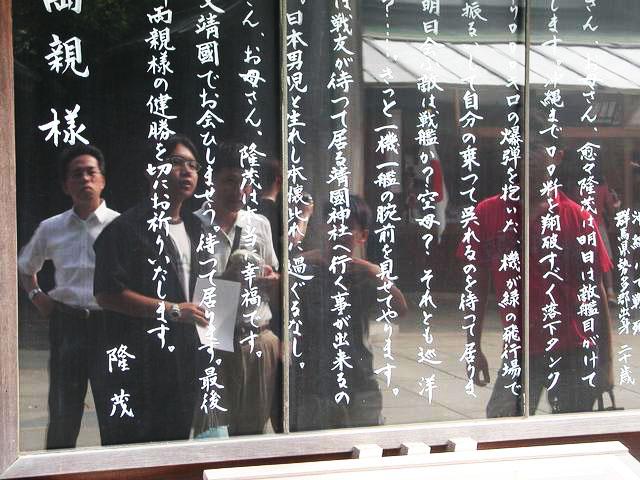 群馬県勢多郡出身 二十歳
さん、お母さん、愈々隆茂は明日は敵艦目がけて
します。沖縄まで〇〇粁を翔破すべく落下タンク
〇〇〇キロの爆弾を抱いた、機が緑の飛行場で
して自分の乗つて呉れるのを待つて居りま
明日会ふ敵は戦艦か?空母? それとも巡洋
?……。きつと一機一艦の腕前を見せてやります。
は戦友が待つて居る靖國神社へ行く事が出来るの
。日本男児と生れし本懐此れに過ぐるなし。
さん、お母さん、隆茂は本当に幸福です。
又靖國でお会ひしませう。待つて居ります。最後
両親様の健勝を切にお祈りいたします。
隆茂
両親様